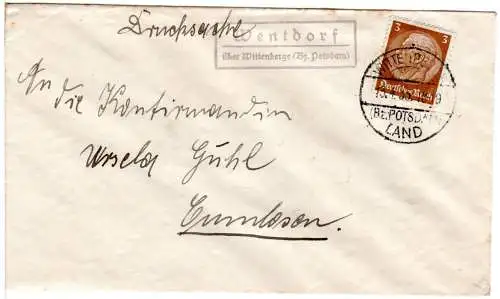 Drucksache
Wentdorf
über Wittenberge (Bz. Potsdam)
3 3
Deutsches Reich
(BZ. POTSDAM)
LAND
An
die Konfirmandin
Ursela Gühl
Cumlosen.